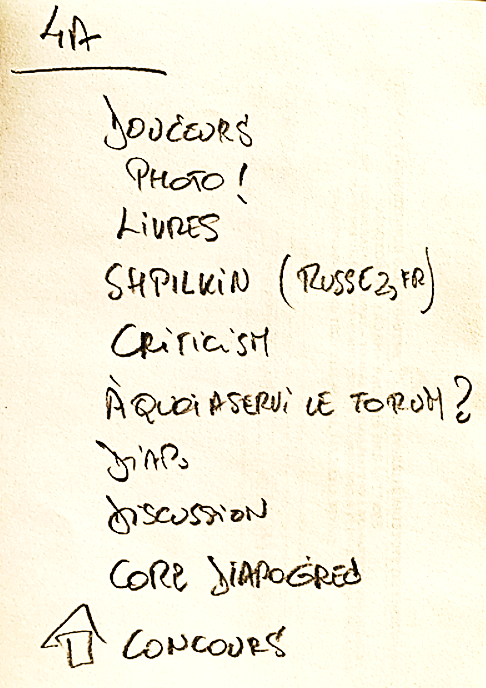 4A
DOUCEURS
PHOTO !
LIVRES
SHPILKIN (RUSSE2, FR)
CRITICISM
À QUOI A SERVI LE FORUM ?
DIAP.
DISCUSSION
CORR
CONCOURS